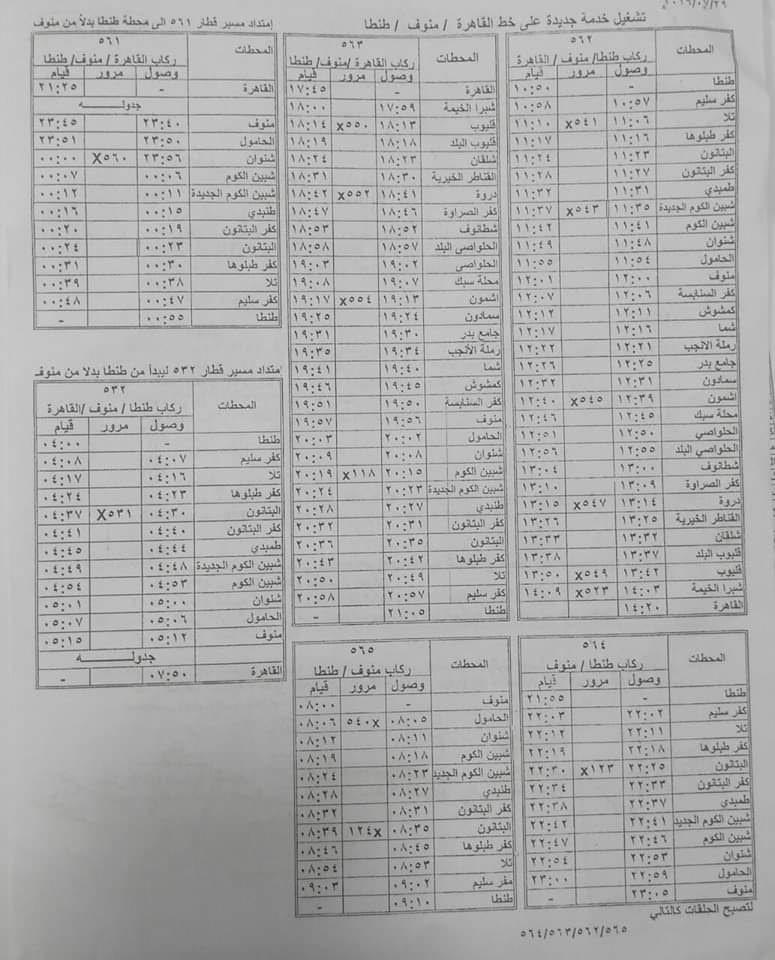 تشغيل خدمة جديدة على خط القاهرة / منوف / طنطا
٥٦٢
المحطات ركاب طنطا/ منوف / القاهرة
وصول مرور قيام
طنطا - ١٠:٥٠
كفر سليم ١٠:٥٧ ١٠:٥٨
تلا ١١:٠٦ ٥٤١x ١١:١٠
كفر طبلوها ١١:١٦ ١١:١٧
البتانون ١١:٢٣ ١١:٢٤
كفر البتانون ١١:٢٧ ١١:٢٨
طمبدي ١١:٣١ ١١:٣٢
شبين الكوم الجديدة ١١:٣٥ ٥٤٣x ١١:٣٧
شبين الكوم ١١:٤١ ١١:٤٢
شنوان ١١:٤٨ ١١:٤٩
الحامول ١١:٥٤ ١١:٥٥
منوف ١٢:٠٠ ١٢:٠١
كفر السنابسة ١٢:٠٦ ١٢:٠٧
كمشوش ١٢:١١ ١٢:١٢
شما ١٢:١٦ ١٢:١٧
رملة الأنجب ١٢:٢١ ١٢:٢٢
جامع بدر ١٢:٢٥ ١٢:٢٦
سمادون ١٢:٣١ ١٢:٣٢
اشمون ١٢:٣٩ ٥٤٥x ١٢:٤٠
محلة سبك ١٢:٤٥ ١٢:٤٦
الحلواصي ١٢:٥٠ ١٢:٥١
الحلواصي البلد ١٢:٥٥ ١٢:٥٦
شطانوف ١٣:٠٠ ١٣:٠٤
كفر الصراوة ١٣:٠٩ ١٣:١٠
دروة ١٣:١٤ ٥٤٧x ١٣:١٥
القناطر الخيرية ١٣:٢٥ ١٣:٢٦
شلقان ١٣:٣٢ ١٣:٣٣
قليوب البلد ١٣:٣٧ ١٣:٣٨
قليوب ١٣:٤٢ ٥٤٩x ١٣:٥٠
شبرا الخيمة ١٤:٠٣ ٥٢٣x ١٤:٠٩
القاهرة ١٤:٢٠
٥٦٣
المحطات ركاب القاهرة /منوف/ طنطا
وصول مرور قيام
القاهرة - ١٧:٤٥
شبرا الخيمة ١٧:٥٩ ١٨:٠٠
قليوب ١٨:١٣ ٥٥٠x ١٨:١٤
قليوب البلد ١٨:١٨ ١٨:١٩
شلقان ١٨:٢٣ ١٨:٢٤
القناطر الخيرية ١٨:٣٠ ١٨:٣١
دروة ١٨:٤١ ٥٥٢x ١٨:٤٢
كفر الصراوة ١٨:٤٦ ١٨:٤٧
شطانوف ١٨:٥٢ ١٨:٥٣
الحلواصي البلد ١٨:٥٧ ١٨:٥٨
الحلواصى ١٩:٠٢ ١٩:٠٣
محلة سبك ١٩:٠٧ ١٩:٠٨
اشمون ١٩:١٣ ٥٥٤x ١٩:١٧
سمادون ١٩:٢٤ ١٩:٢٥
جامع بدر ١٩:٣٠ ١٩:٣١
رملة الأنجب ١٩:٣٤ ١٩:٣٥
شما ١٩:٤٠ ١٩:٤١
كمشوش ١٩:٤٥ ١٩:٤٦
كفر السنابسة ١٩:٥٠ ١٩:٥١
منوف ١٩:٥٦ ١٩:٥٧
الحامول ٢٠:٠٢ ٢٠:٠٣
شنوان ٢٠:٠٨ ٢٠:٠٩
شبين الكوم ٢٠:١٥ ١١٨x ٢٠:١٩
شبين الكوم الجديدة ٢٠:٢٣ ٢٠:٢٤
طنبدي ٢٠:٢٧ ٢٠:٢٨
كفر البتانون ٢٠:٣١ ٢٠:٣٢
البتانون ٢٠:٣٥ ٢٠:٣٦
كفر طبلوها ٢٠:٤٢ ٢٠:٤٣
تلا ٢٠:٤٩ ٢٠:٥٠
كفر سليم ٢٠:٥٧ ٢٠:٥٨
طنطا ٢١:٠٥ -
إمتداد مسير قطار ٥٦١ الى محطة طنطا بدلا من منوف
٥٦١
المحطات ركاب القاهرة / منوف / طنطا
وصول مرور قيام
القاهرة - ٢١:٢٥
جدولـــــه
منوف ٢٣:٤٠ ٢٣:٤٥
الحامول ٢٣:٥٠ ٢٣:٥١
شنوان ٢٣:٥٦ ٥٦٠X ٠٠:٠٠
شبين الكوم ٠٠:٠٦ ٠٠:٠٧
شبين الكوم الجديدة ٠٠:١١ ٠٠:١٢
طنبدي ٠٠:١٥ ٠٠:١٦
كفر البتانون ٠٠:١٩ ٠٠:٢٠
البتانون ٠٠:٢٣ ٠٠:٢٤
كفر طبلوها ٠٠:٣٠ ٠٠:٣١
تلا ٠٠:٣٨ ٠٠:٣٩
كفر سليم ٠٠:٤٧ ٠٠:٤٨
طنطا ٠٠:٥٥ -
إمتداد مسير قطار ٥٣٢ ليبدأ من طنطا بدلا من منوف
٥٣٢
المحطات ركاب طنطا / منوف /القاهرة
وصول مرور قيام
طنطا - ٠٤:٠٠
كفر سليم ٠٤:٠٧ ٠٤:٠٨
تلا ٠٤:١٦ ٠٤:١٧
كفر طبلوها ٠٤:٢٣ ٠٤:٢٤
البتانون ٠٤:٣٠ ٥٣١X ٠٤:٣٧
كفر البتانون ٠٤:٤٠ ٠٤:٤١
طمبدي ٠٤:٤٤ ٠٤:٤٥
شبين الكوم الجديدة ٠٤:٤٨ ٠٤:٤٩
شبين الكوم ٠٤:٥٣ ٠٤:٥٤
شنوان ٠٥:٠٠ ٠٥:٠١
الحامول ٠٥:٠٦ ٠٥:٠٧
منوف ٠٥:١٢ ٠٥:١٥
جدولـــــه
القاهرة ٠٧:٥٠ -
٥٦٤
المحطات ركاب طنطا / منوف
وصول مرور قيام
طنطا - ٢١:٥٥
كفر سليم ٢٢:٠٢ ٢٢:٠٣
تلا ٢٢:١١ ٢٢:١٢
كفر طبلوها ٢٢:١٨ ٢٢:١٩
البتانون ٢٢:٢٥ ١٢٣x ٢٢:٣٠
كفر البتانون ٢٢:٣٣ ٢٢:٣٤
طمبدي ٢٢:٣٧ ٢٢:٣٨
شبين الكوم الجديد ٢٢:٤١ ٢٢:٤٢
شبين الكوم ٢٢:٤٦ ٢٢:٤٧
شنوان ٢٢:٥٣ ٢٢:٥٤
الحامول ٢٢:٥٩ ٢٣:٠٠
منوف ٢٣:٠٥ -
٥٦٥
المحطات ركاب منوف / طنطا
وصول مرور قيام
منوف - ٠٨:٠٠
الحامول ٠٨:٠٥ ٥٤٠x ٠٨:٠٦
شنوان ٠٨:١١ ٠٨:١٢
شبين الكوم ٠٨:١٨ ٠٨:١٩
شبين الكوم الجديد ٠٨:٢٣ ٠٨:٢٤
طنبدي ٠٨:٢٧ ٠٨:٢٨
كفر البتانون ٠٨:٣١ ٠٨:٣٢
البتانون ٠٨:٣٥ ١٢٤x ٠٨:٣٩
كفر طبلوها ٠٨:٤٥ ٠٨:٤٦
تلا ٠٨:٥٣ ٠٨:٥٤
مفر سليم ٠٩:٠٢ ٠٩:٠٣
طنطا ٠٩:١٠ -
لتصبح الحلقات كالتالي
٥٦٤/٥٦٣/٥٦٢/٥٦٥